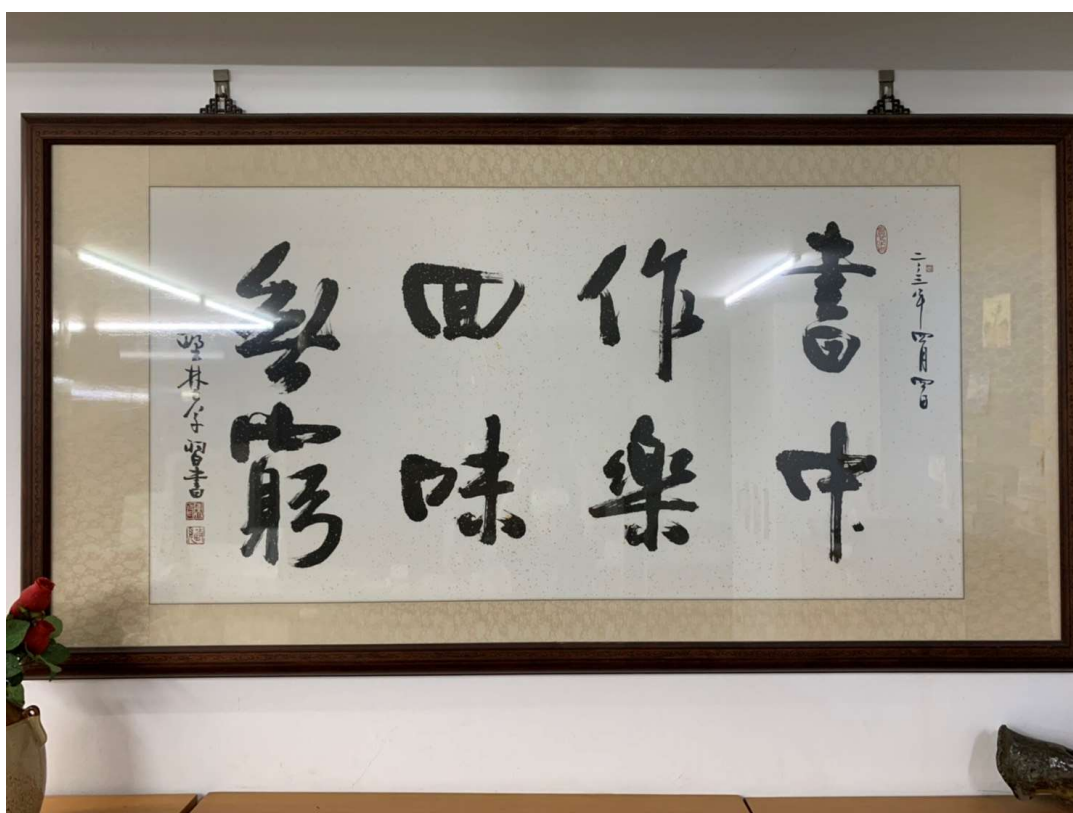 二〇一三年四月四日
書中
作樂
回味
無窮
林孝習書